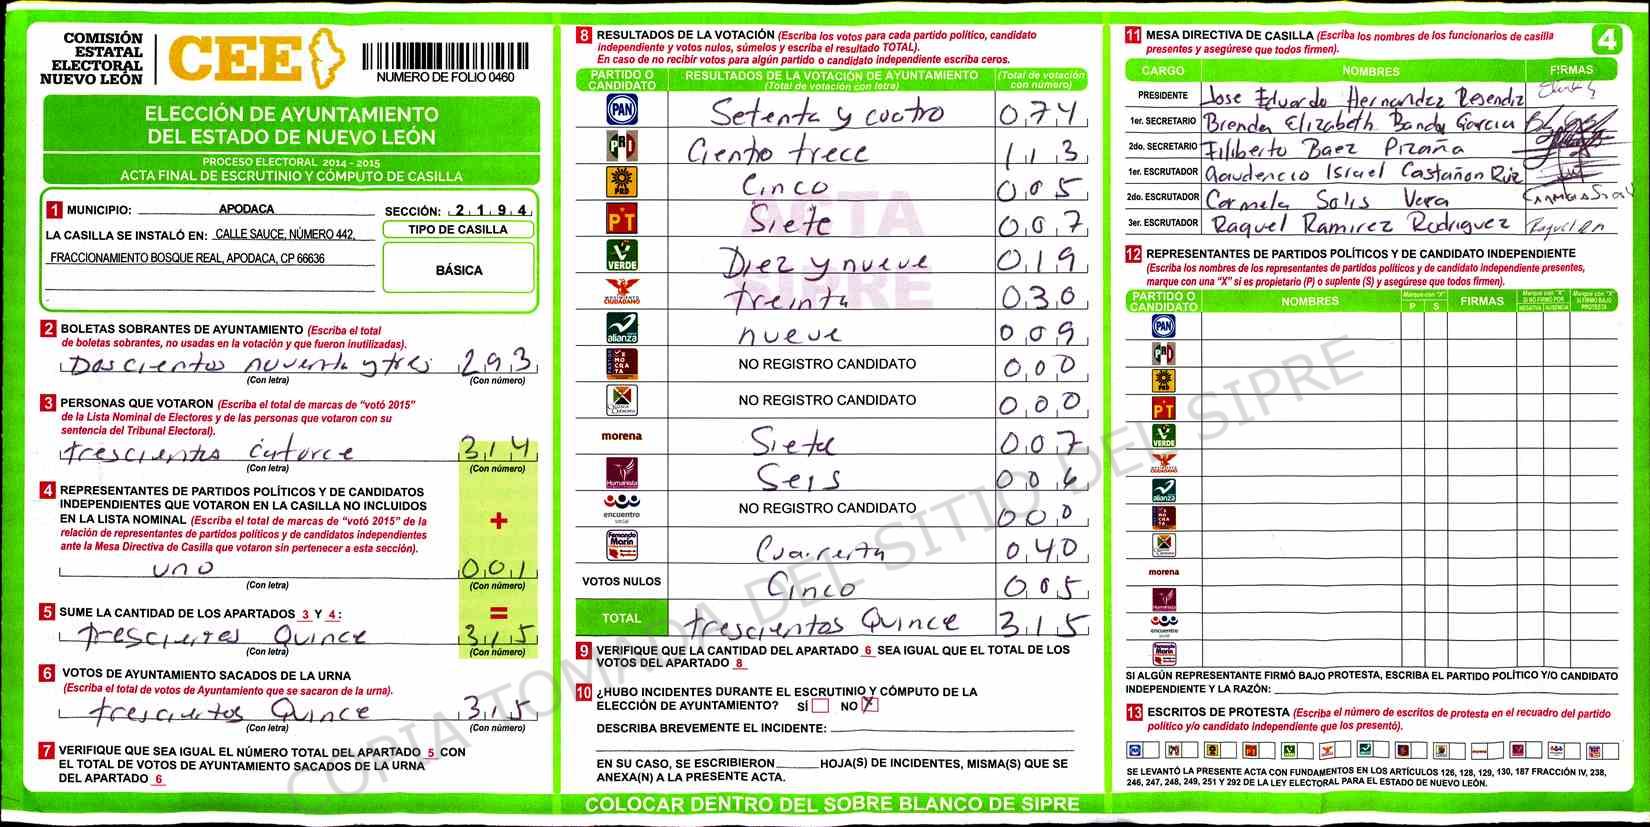 COMISIÓN
ESTATAL
ELECTORAL
NUEVO LEÓN
CEE
NUMERO DE FOLIO 0460
ELECCIÓN DE AYUNTAMIENTO
DEL ESTADO DE NUEVO LEÓN
PROCESO ELECTORAL 2014 - 2015
ACTA FINAL DE ESCRUTINIO Y CÓMPUTO DE CASILLA
1 MUNICIPIO: APODACA SECCIÓN: 2 1 9 4
LA CASILLA SE INSTALÓ EN: CALLE SAUCE, NÚMERO 442,
FRACCIONAMIENTO BOSQUE REAL, APODACA, CP 66636
TIPO DE CASILLA
BÁSICA
2 BOLETAS SOBRANTES DE AYUNTAMIENTO (Escriba el total
de boletas sobrantes, no usadas en la votación y que fueron inutilizadas).
Doscientos noventa y tres 293
(Con letra) (Con número)
3 PERSONAS QUE VOTARON (Escriba el total de marcas de "votó 2015"
de la Lista Nominal de Electores y de las personas que votaron con su
sentencia del Tribunal Electoral).
trescientos catorce 314
(Con letra) (Con número)
4 REPRESENTANTES DE PARTIDOS POLÍTICOS Y DE CANDIDATOS
INDEPENDIENTES QUE VOTARON EN LA CASILLA NO INCLUIDOS
EN LA LISTA NOMINAL (Escriba el total de marcas de "votó 2015" de la
relación de representantes de partidos políticos y de candidatos independientes
ante la Mesa Directiva de Casilla que votaron sin pertenecer a esta sección).
+
uno 001
(Con letra) (Con número)
5 SUME LA CANTIDAD DE LOS APARTADOS 3 Y 4: =
trescientos Quince 315
(Con letra) (Con número)
6 VOTOS DE AYUNTAMIENTO SACADOS DE LA URNA
(Escriba el total de votos de Ayuntamiento que se sacaron de la urna).
trescientos Quince 315
(Con letra) (Con número)
7 VERIFIQUE QUE SEA IGUAL EL NÚMERO TOTAL DEL APARTADO 5 CON
EL TOTAL DE VOTOS DE AYUNTAMIENTO SACADOS DE LA URNA
DEL APARTADO 6
8 RESULTADOS DE LA VOTACIÓN (Escriba los votos para cada partido político, candidato
independiente y votos nulos, súmelos y escriba el resultado TOTAL).
En caso de no recibir votos para algún partido o candidato independiente escriba ceros.
PARTIDO O CANDIDATO RESULTADOS DE LA VOTACIÓN DE AYUNTAMIENTO (Total de votación con letra) (Total de votación con número)
PAN Setenta y cuatro 074
PRI Ciento trece 113
PRD Cinco 005
PT Siete 007
VERDE Diez y nueve 019
MOVIMIENTO CIUDADANO treinta 030
alianza nueve 009
NO REGISTRO CANDIDATO 000
NO REGISTRO CANDIDATO 000
morena Siete 007
Humanista Seis 006
encuentro social NO REGISTRO CANDIDATO 000
Fernando Marín Cuarenta 040
VOTOS NULOS Cinco 005
TOTAL trescientos Quince 315
ACTA
SIPRE
9 VERIFIQUE QUE LA CANTIDAD DEL APARTADO 6 SEA IGUAL QUE EL TOTAL DE LOS
VOTOS DEL APARTADO 8
10 ¿HUBO INCIDENTES DURANTE EL ESCRUTINIO Y CÓMPUTO DE LA
ELECCIÓN DE AYUNTAMIENTO? SÍ NO X
DESCRIBA BREVEMENTE EL INCIDENTE:
EN SU CASO, SE ESCRIBIERON HOJA(S) DE INCIDENTES, MISMA(S) QUE SE
ANEXA(N) A LA PRESENTE ACTA.
COLOCAR DENTRO DEL SOBRE BLANCO DE SIPRE
11 MESA DIRECTIVA DE CASILLA (Escriba los nombres de los funcionarios de casilla
presentes y asegúrese que todos firmen).
4
CARGO NOMBRES FIRMAS
PRESIDENTE Jose Eduardo Hernandez Resendiz
1er. SECRETARIO Brenda Elizabeth Banda Garcia
2do. SECRETARIO Filiberto Baez Pizaña
1er. ESCRUTADOR Gaudencio Israel Castañon Ruiz
2do. ESCRUTADOR Carmela Solis Vera
3er. ESCRUTADOR Raquel Ramirez Rodriguez
12 REPRESENTANTES DE PARTIDOS POLÍTICOS Y DE CANDIDATO INDEPENDIENTE
(Escriba los nombres de los representantes de partidos políticos y de candidato independiente presentes,
marque con una "X" si es propietario (P) o suplente (S) y asegúrese que todos firmen).
PARTIDO O CANDIDATO NOMBRES Marque con "X" P S FIRMAS Marque con "X" SI NO FIRMÓ POR NEGATIVA AUSENCIA Marque con "X" SI FIRMÓ BAJO PROTESTA
PAN
PRI
PRD
PT
VERDE
alianza
morena
Humanista
encuentro social
Fernando Marín
SI ALGÚN REPRESENTANTE FIRMÓ BAJO PROTESTA, ESCRIBA EL PARTIDO POLÍTICO Y/O CANDIDATO
INDEPENDIENTE Y LA RAZÓN:
13 ESCRITOS DE PROTESTA (Escriba el número de escritos de protesta en el recuadro del partido
político y/o candidato independiente que los presentó).
SE LEVANTÓ LA PRESENTE ACTA CON FUNDAMENTOS EN LOS ARTÍCULOS 126, 128, 129, 130, 187 FRACCIÓN IV, 238,
246, 247, 248, 249, 251 Y 292 DE LA LEY ELECTORAL PARA EL ESTADO DE NUEVO LEÓN.
COPIA TOMADA DEL SITIO DEL SIPRE